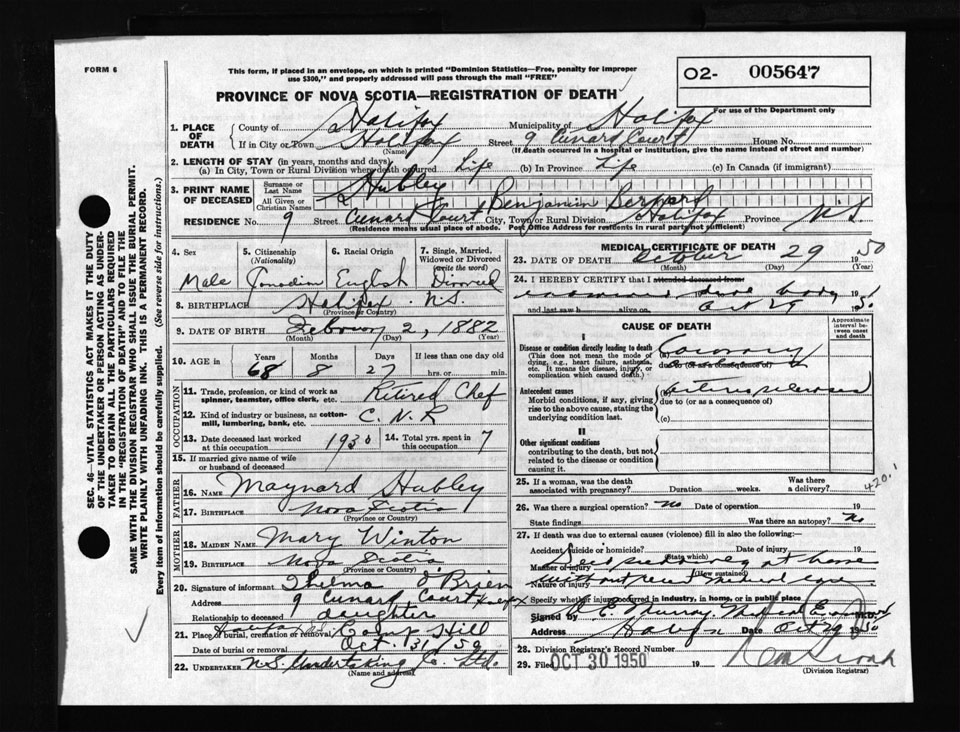 FORM 6
This form, if placed in an envelope, on which is printed "Dominion Statistics—Free, penalty for improper
use $300," and properly addressed will pass through the mail "FREE"
O2- 005647
For use of the Department only
PROVINCE OF NOVA SCOTIA—REGISTRATION OF DEATH
1. PLACE OF DEATH
County of Halifax Municipality of Halifax
If in City or Town Halifax Street 9 Cunard Court House No.
(Name) (If death occurred in a hospital or institution, give the name instead of street and number)
2. LENGTH OF STAY (in years, months and days)
(a) In City, Town or Rural Division where death occurred Life (b) In Province Life (c) In Canada (if immigrant)
3. PRINT NAME OF DECEASED
Surname or Last Name Hubley
All Given or Christian Names Benjamin Bernard
RESIDENCE No. 9 Street Cunard Court City, Town or Rural Division Halifax Province N.S.
(Residence means usual place of abode. Post Office Address for residents in rural parts not sufficient)
4. Sex Male
5. Citizenship (Nationality) Canadian
6. Racial Origin English
7. Single, Married, Widowed or Divorced (write the word) Divorced
8. BIRTHPLACE Halifax N.S.
(Province or Country)
9. DATE OF BIRTH February 2, 1882
(Month) (Day) (Year)
10. AGE in Years 68 Months 8 Days 27 If less than one day old hrs. or min.
OCCUPATION
11. Trade, profession, or kind of work as spinner, teamster, office clerk, etc. Retired Chef
12. Kind of industry or business, as cotton-mill, lumbering, bank, etc. C.N.R
13. Date deceased last worked at this occupation 1930 14. Total yrs. spent in this occupation 7
15. If married give name of wife or husband of deceased
FATHER
16. NAME Maynard Hubley
17. BIRTHPLACE Nova Scotia
(Province or Country)
MOTHER
18. MAIDEN NAME Mary Winton
19. BIRTHPLACE Nova Scotia
(Province or Country)
20. Signature of informant Thelma O'Brien
Address 9 Cunard Court Halifax
Relationship to deceased daughter
21. Place of burial, cremation or removal Camp Hill
Date of burial or removal Oct 31/50
22. UNDERTAKER N.S. Undertaking Co. Ltd.
(Name and address)
MEDICAL CERTIFICATE OF DEATH
23. DATE OF DEATH October 29 1950
(Month) (Day) (Year)
24. I HEREBY CERTIFY that I attended deceased from
examined dead body
and last saw h alive on Oct 29 1950
CAUSE OF DEATH
Approximate interval between onset and death
I
Disease or condition directly leading to death
(This does not mean the mode of dying, e.g., heart failure, asthenia, etc. It means the disease, injury, or complication which caused death.)
(a) Coronary
due to (or as a consequence of)
Antecedent causes
Morbid conditions, if any, giving rise to the above cause, stating the underlying condition last.
(b) arteriosclerosis
due to (or as a consequence of)
(c)
II
Other significant conditions
contributing to the death, but not related to the disease or condition causing it.
420.1
25. If a woman, was the death associated with pregnancy? Duration weeks. Was there a delivery?
26. Was there a surgical operation? No Date of operation 19
State findings Was there an autopsy? No
27. If death was due to external causes (violence) fill in also the following:—
Accident, suicide or homicide? Date of injury 19
(State which)
Manner of injury
(How sustained)
Nature of injury
Specify whether injury occurred in industry, in home, or in public place
Signed by Murray Medical Examiner M.D.
Address Halifax Date Oct 29 1950
28. Division Registrar's Record Number
29. Filed OCT 30 1950 19
(Division Registrar)
SEC. 46—VITAL STATISTICS ACT MAKES IT THE DUTY
OF THE UNDERTAKER OR PERSON ACTING AS UNDER-
TAKER TO OBTAIN ALL THE PARTICULARS REQUIRED
IN THE "REGISTRATION OF DEATH" AND TO FILE THE
SAME WITH THE DIVISION REGISTRAR WHO SHALL ISSUE THE BURIAL PERMIT.
WRITE PLAINLY WITH UNFADING INK. THIS IS A PERMANENT RECORD.
Every item of information should be carefully supplied. (See reverse side for instructions.)